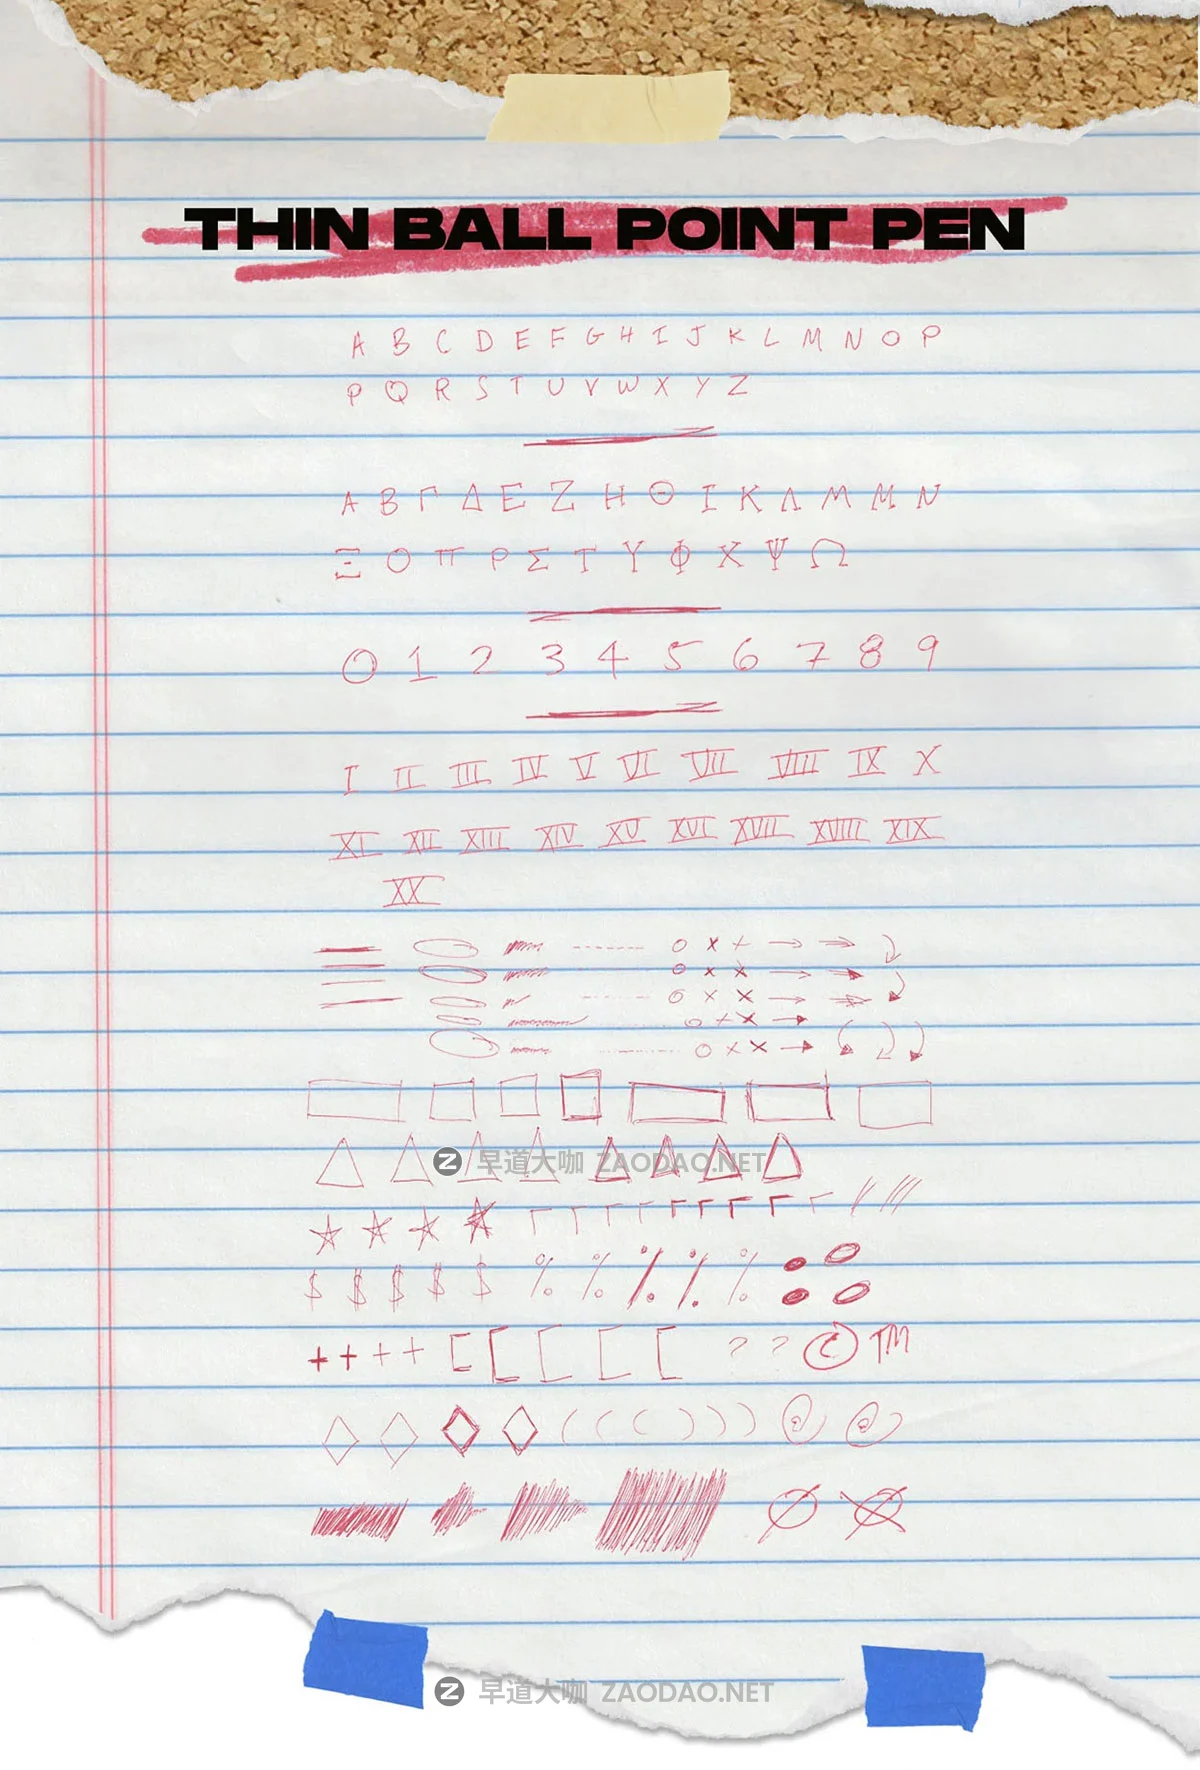 THIN BALL POINT PEN
A B C D E F G H I J K L M N O P
P Q R S T U V W X Y Z
Α Β Γ Δ Ε Ζ Η Θ Ι Κ Λ Μ Μ Ν
Ξ Ο Π Ρ Σ Τ Υ Φ Χ Ψ Ω
0 1 2 3 4 5 6 7 8 9
I II III IV V VI VII VIII IX X
XI XII XIII XIV XV XVI XVII XVIII XIX
XX
早道大咖 ZAODAO.NET
$ $ $ $ $ % % % % %
+ + + + [ [ [ [ [ ? ? © TM
( ( ( ) ) )
早道大咖 ZAODAO.NET